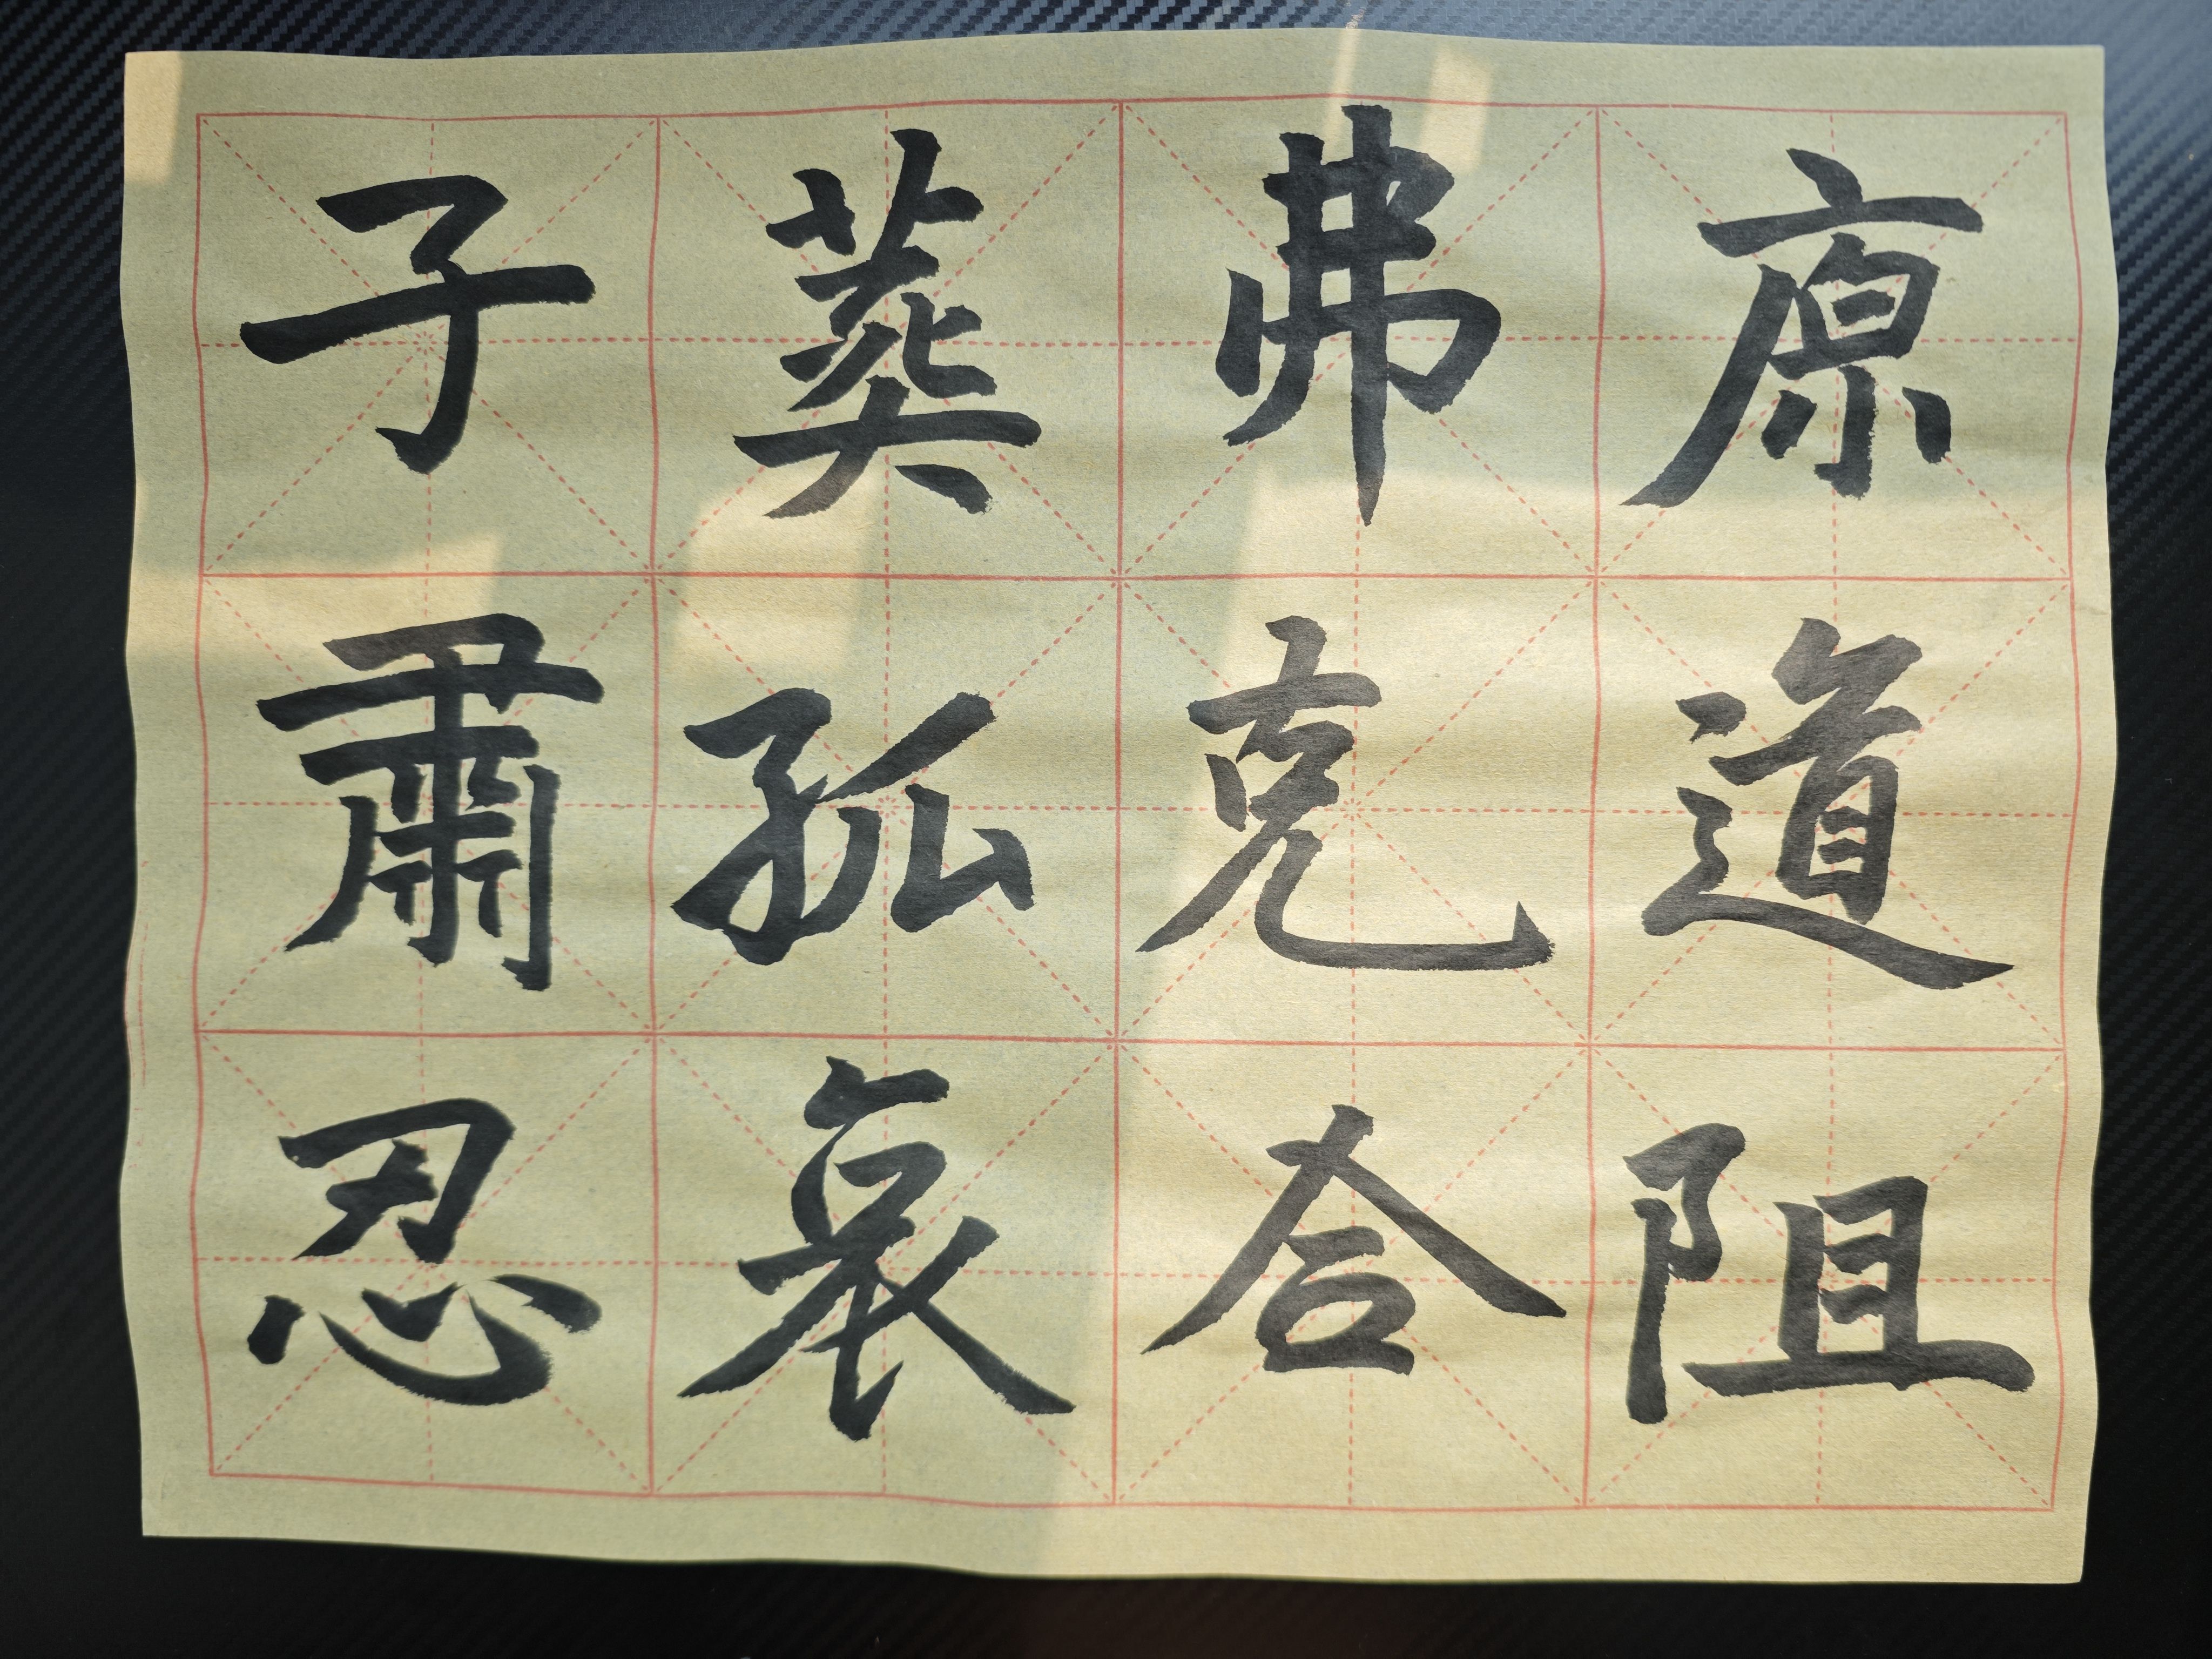 原道阻
弗克合
葬孤哀
子肅忍